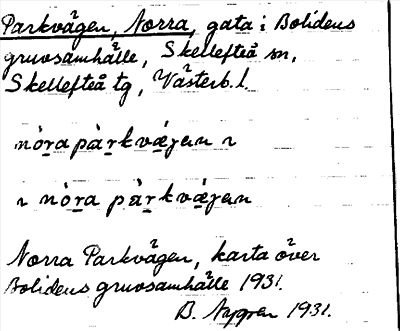 Parkvägen, Norra, gata i Bolidens
gruvsamhälle, Skellefteå sn,
Skellefteå tg, Västerb. l.
nò́rapàrkvǽgen ı
ı nòra pàrkvǽgen
Norra Parkvägen, karta över
Bolidens gruvsamhälle 1931.
B. Nygren 1931.